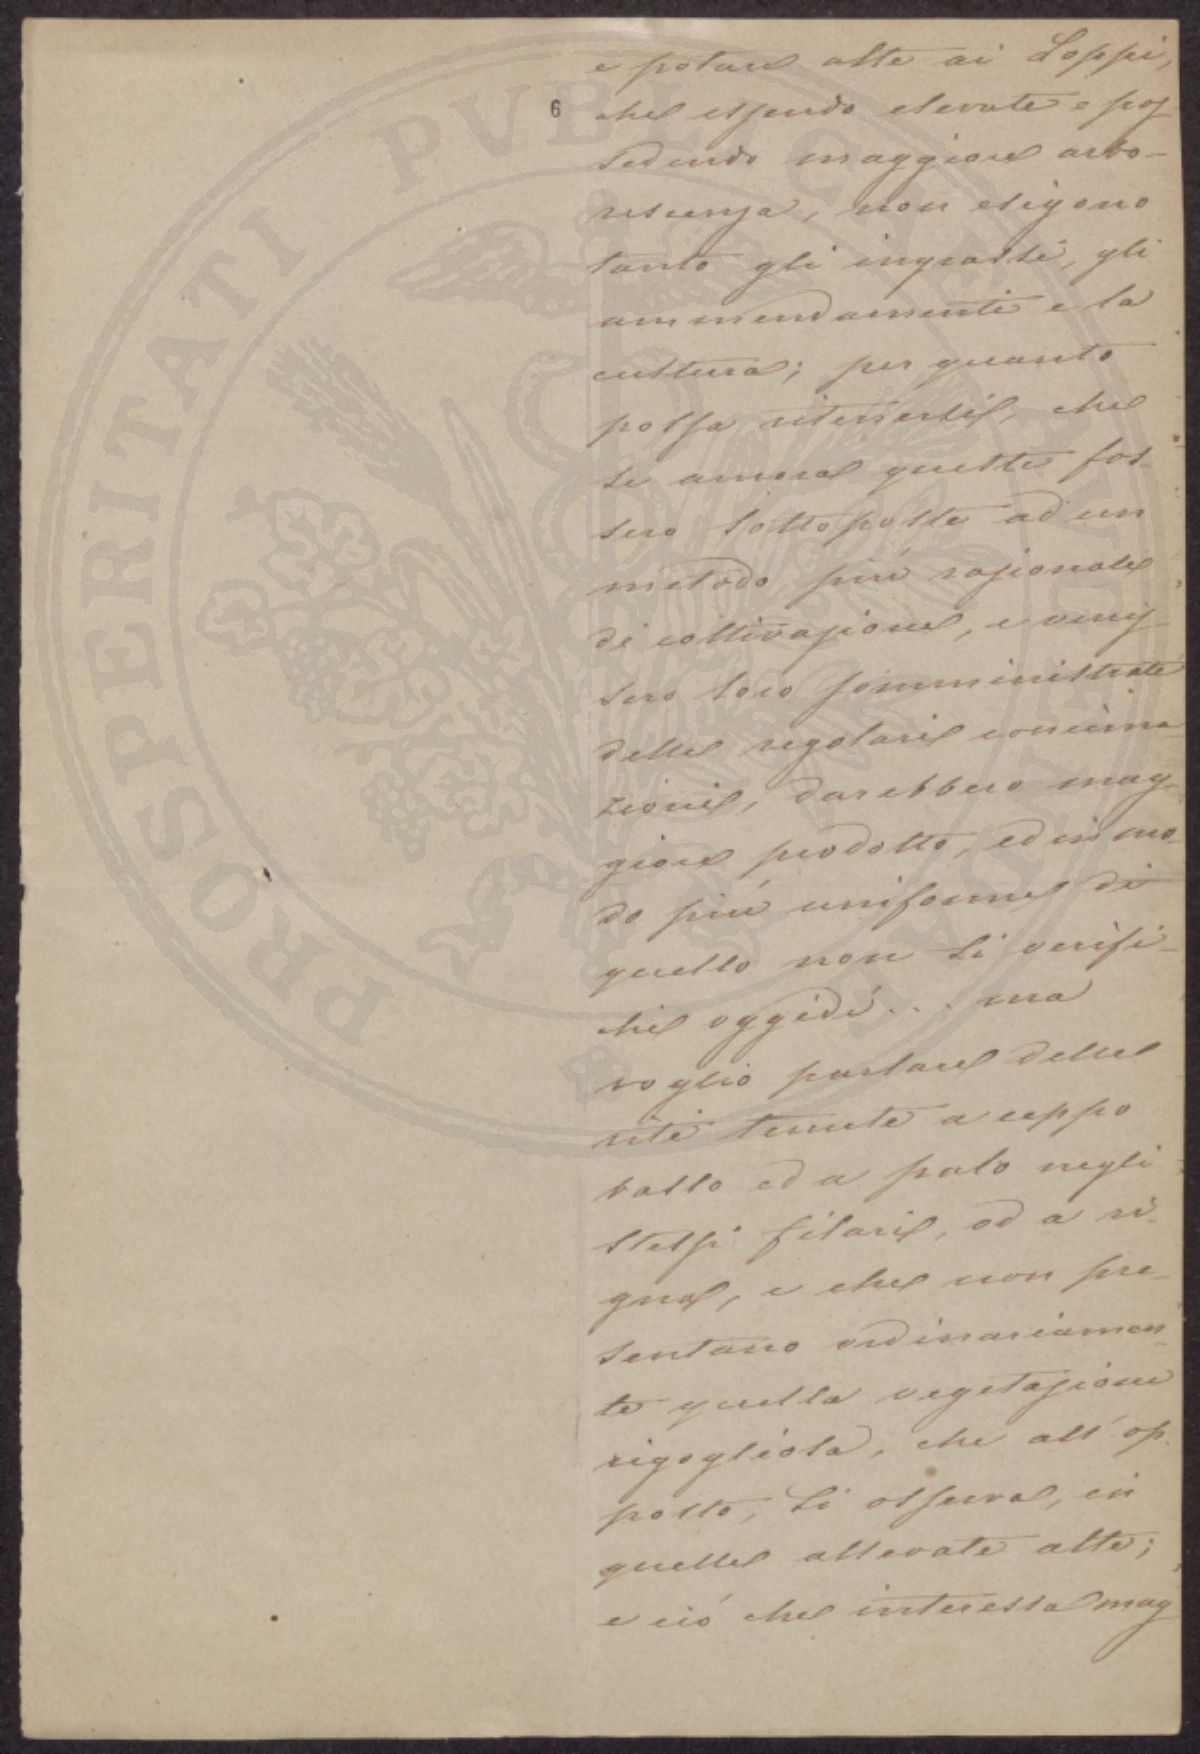 6
e potare alte ai Loppi,
che essendo elevate e pos-
sedendo maggiore arbo-
rescenza, non esigono
tanto gli ingrassi, gli
ammendamenti e la
cultura; per quanto
possa ritenersi, che
se ancora queste fos-
sero sottoposte ad un
metodo più razionale
di coltivazione, e venis-
sero loro somministrate
delle regolari concima
zioni, darebbero mag-
giore prodotto, ed in mo-
do più uniforme di
quello non si verifi-
chi oggidì... ma
voglio parlare delle
viti tenute a ceppo
basso ed a palo negli
stessi filari, od a vi-
gna, e che non pre-
sentano ordinariamen-
te quella vegetazione
rigogliosa, che all'op-
posto, si osserva, in
quelle allevate alte;
e ciò che interessa mag
PROSPERITATI PVBLICAE AVGENDAE